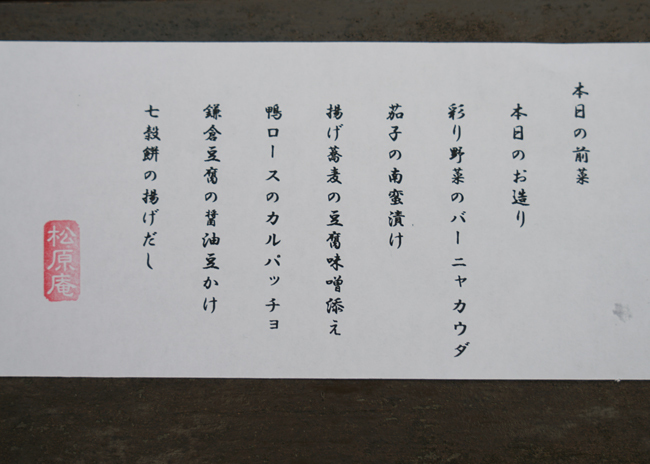 本日の前菜
本日のお造り
彩り野菜のバーニャカウダ
茄子の南蛮漬け
揚げ蕎麦の豆腐味噌添え
鴨ロースのカルパッチョ
鎌倉豆腐の醤油豆かけ
七穀餅の揚げだし
松原庵